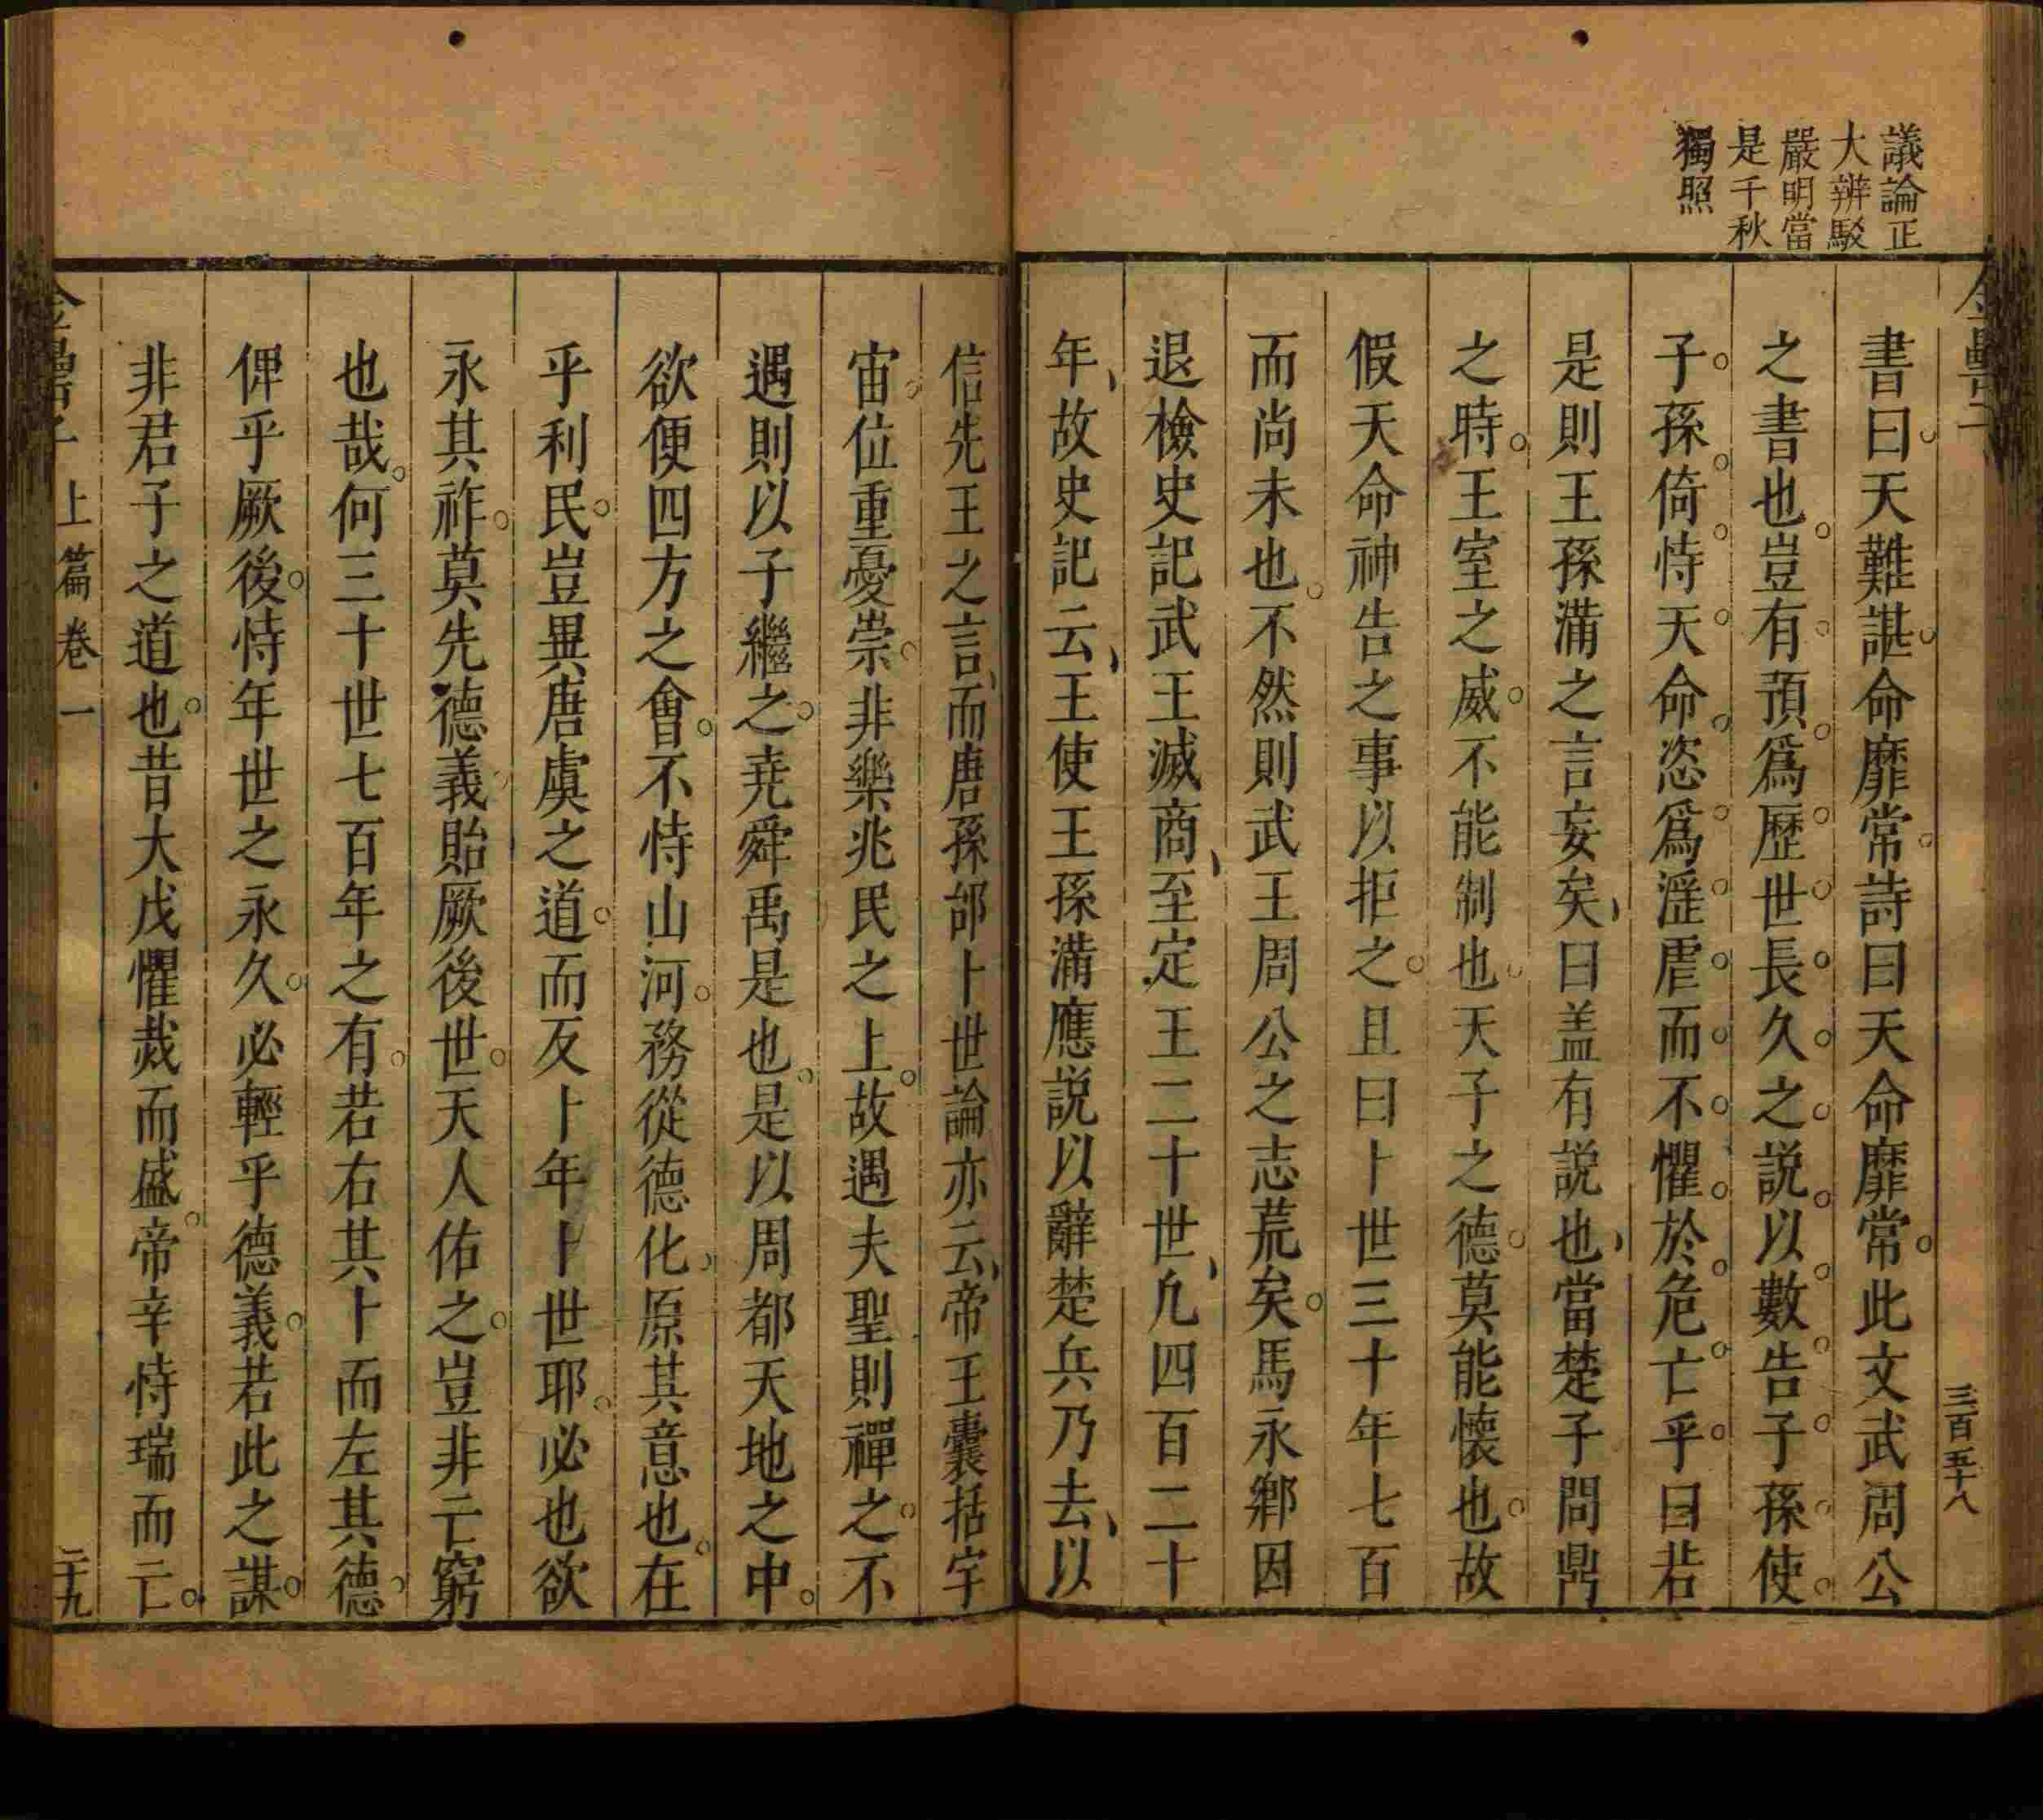 議論正
大辨駁
嚴明當
是千秋
獨照
三百五十八
書曰天難諶命靡常詩曰天命靡常此文武周公
之書也豈有預爲歷世長久之説以數告子孫使
子孫倚恃天命恣爲淫虐而不懼於危亡乎曰若
是則王孫滿之言妄矣曰盖有説也當楚子問鼎
之時王室之威不能制也天子之德莫能懷也故
假天命神告之事以拒之且曰卜世三十年七百
而尚未也不然則武王周公之志荒矣馬永鄕因
退檢史記武王滅商至定王二十世凢四百二十
年故史記云王使王孫滿應説以辭楚兵乃去以
信先王之言而唐孫郃卜世論亦云帝王囊括宇
宙位重憂崇非樂兆民之上故遇夫聖則禪之不
遇則以子繼之堯舜禹是也是以周都天地之中
欲便四方之會不恃山河務從德化原其意也在
乎利民豈異唐虞之道而反卜年卜世耶必也欲
永其祚莫先德義貽厥後世天人佑之豈非亡窮
也哉何三十世七百年之有若右其卜而左其德
俾乎厥後恃年世之永久必輕乎德義若此之謀
非君子之道也昔大戊懼烖而盛帝辛恃瑞而亡
金罍子 上篇 卷一
二十九